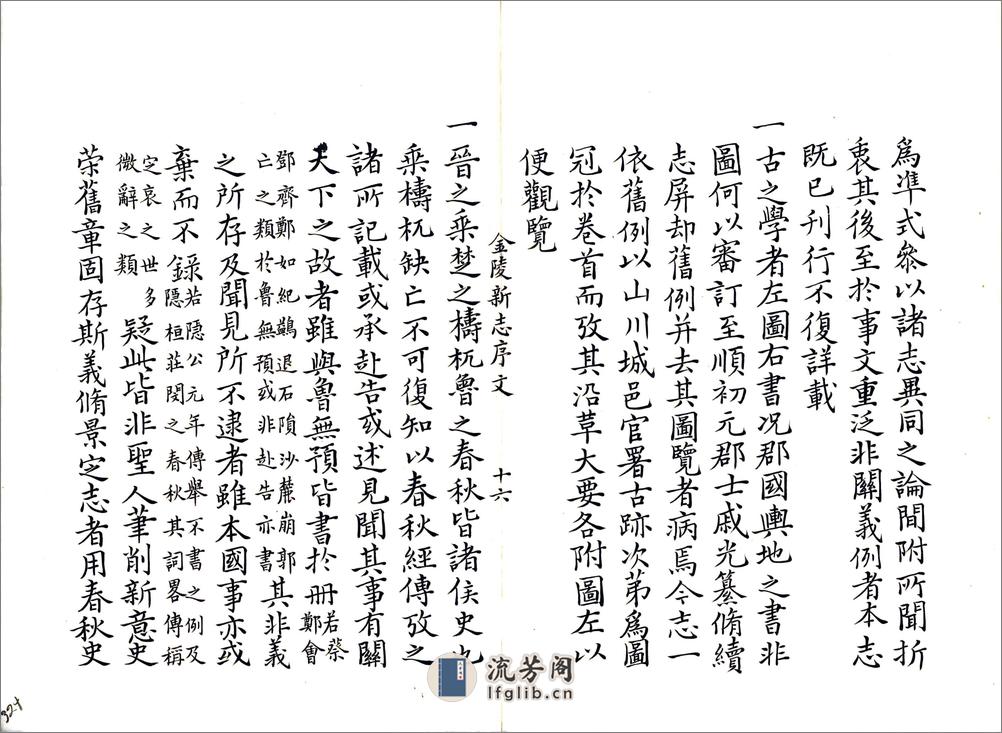 爲準式參以諸志異同之論間附所聞折
衷其後至於事文重泛非關義例者本志
既已刊行不復詳載
一古之學者左圖右書况郡國輿地之書非
圖何以審訂至順初元郡士戚光纂脩續
志屏却舊例并去其圖覽者病焉今志一
依舊例以山川城邑官署古跡次第爲圖
冠於卷首而攷其沿草大要各附圖左以
便觀覽
金陵新志序文 十六
一晉之乘楚之檮杌魯之春秋皆諸侯史也
乘檮杌缺亡不可復知以春秋經傳攷之
諸所記載或承赴告或述見聞其事有關
天下之故者雖與魯無預皆書於册若蔡鄭會
鄧齊鄭如紀鷁退石隕沙麓崩郭亡之類於魯無預或非赴告亦書其非義
之所存及聞見所不逮者雖本國事亦或
棄而不錄若隱公元年傳舉不書之例及隱桓莊閔之春秋其詞畧傳稱
定哀之世多微辭之類疑此皆非聖人筆削新意史
榮舊章固存斯義脩景定志者用春秋史
流芳阁
lfglib.cn